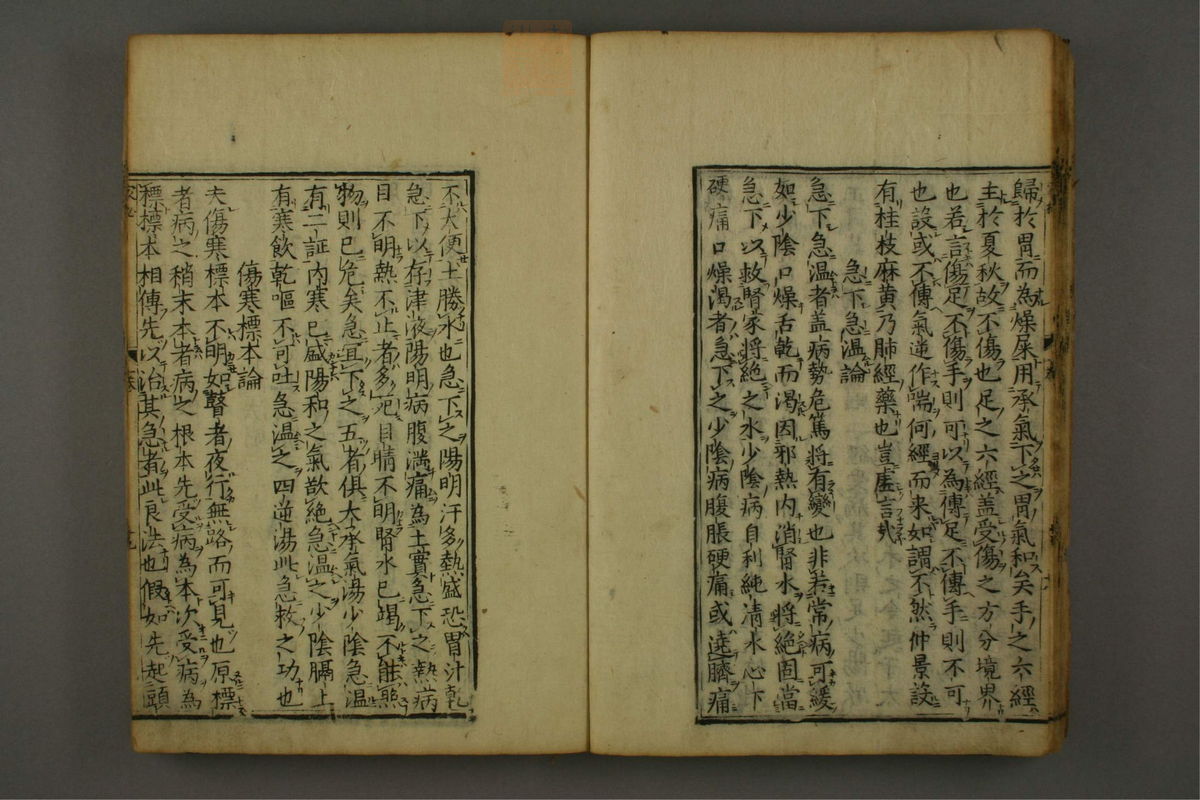 歸於胃而為燥屎用承氣下之胃氣和矣手之六經
主於夏秋故不傷也足之六經蓋受傷之方分境界
也若言傷足不傷手則可以為傳足不傳手則不可
也設或不傳氣逆作喘何經而来如謂不然仲景設
有桂枝麻黄乃肺經藥也豈虚言哉
急下急温論
急下急温者盖病勢危篤將有變也非若常病可緩
如少陰口燥舌乾而渇因邪熱内消腎水將絶固當
急下以救腎家將絶之水少陰病自利純清水心下
硬痛口燥渇者急下之少陰病腹脹硬痛或遶臍痛
不大便土勝水也急下之陽明汗多熱盛恐胃汁乾
急下以存津液陽明病腹満痛為土實急下之熱病
目不明熱不止者多死目睛不明腎水已竭不能照
物則已危矣急宜下之五者俱大承氣湯少陰急温
有二証内寒已盛陽和之氣欲絶急温之少陰膈上
有寒飲乾嘔不可吐急温之四逆湯此急救之功也
傷寒標本論
夫傷寒標本不明如瞽者夜行無路而可見也原標
者病之稍末本者病之根本先受病為本次受病為
標標本相傳先以治其急者此良法也假如先起頭